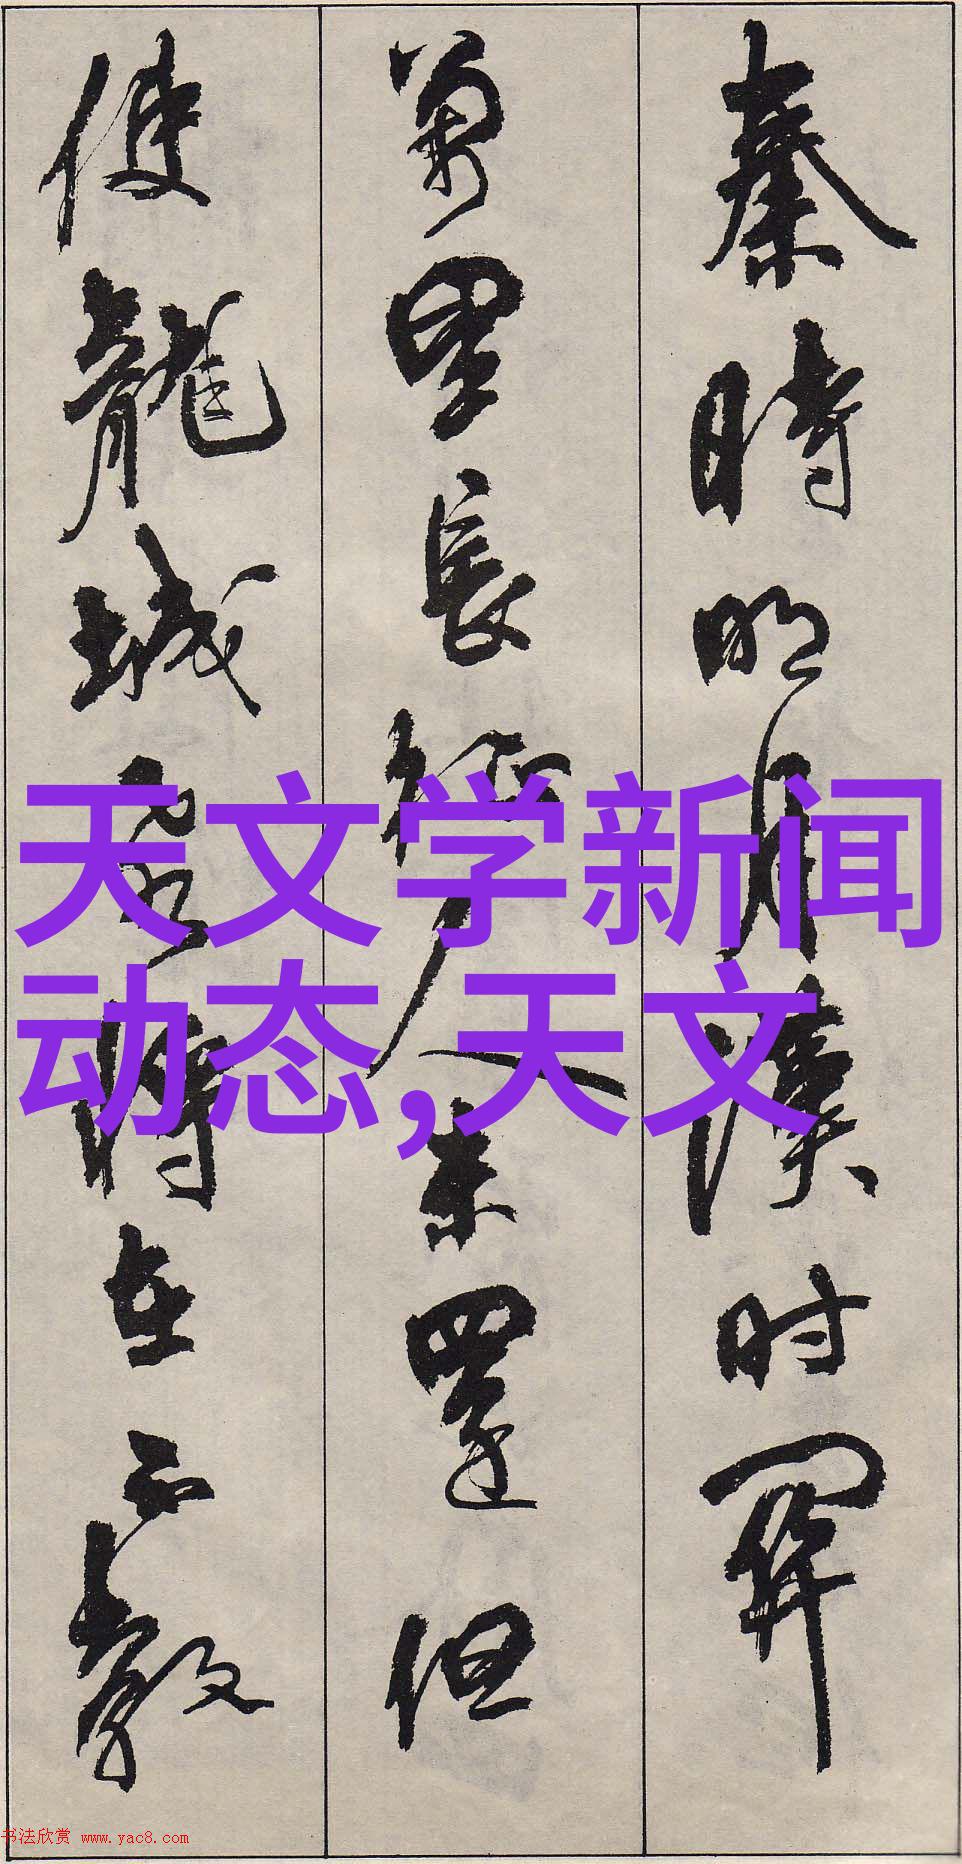 秦時明月漢时關
萬里長征人未還但
使龍城飛將在不教
天文学新闻
动态,天文
书法欣赏 www.yac8.com